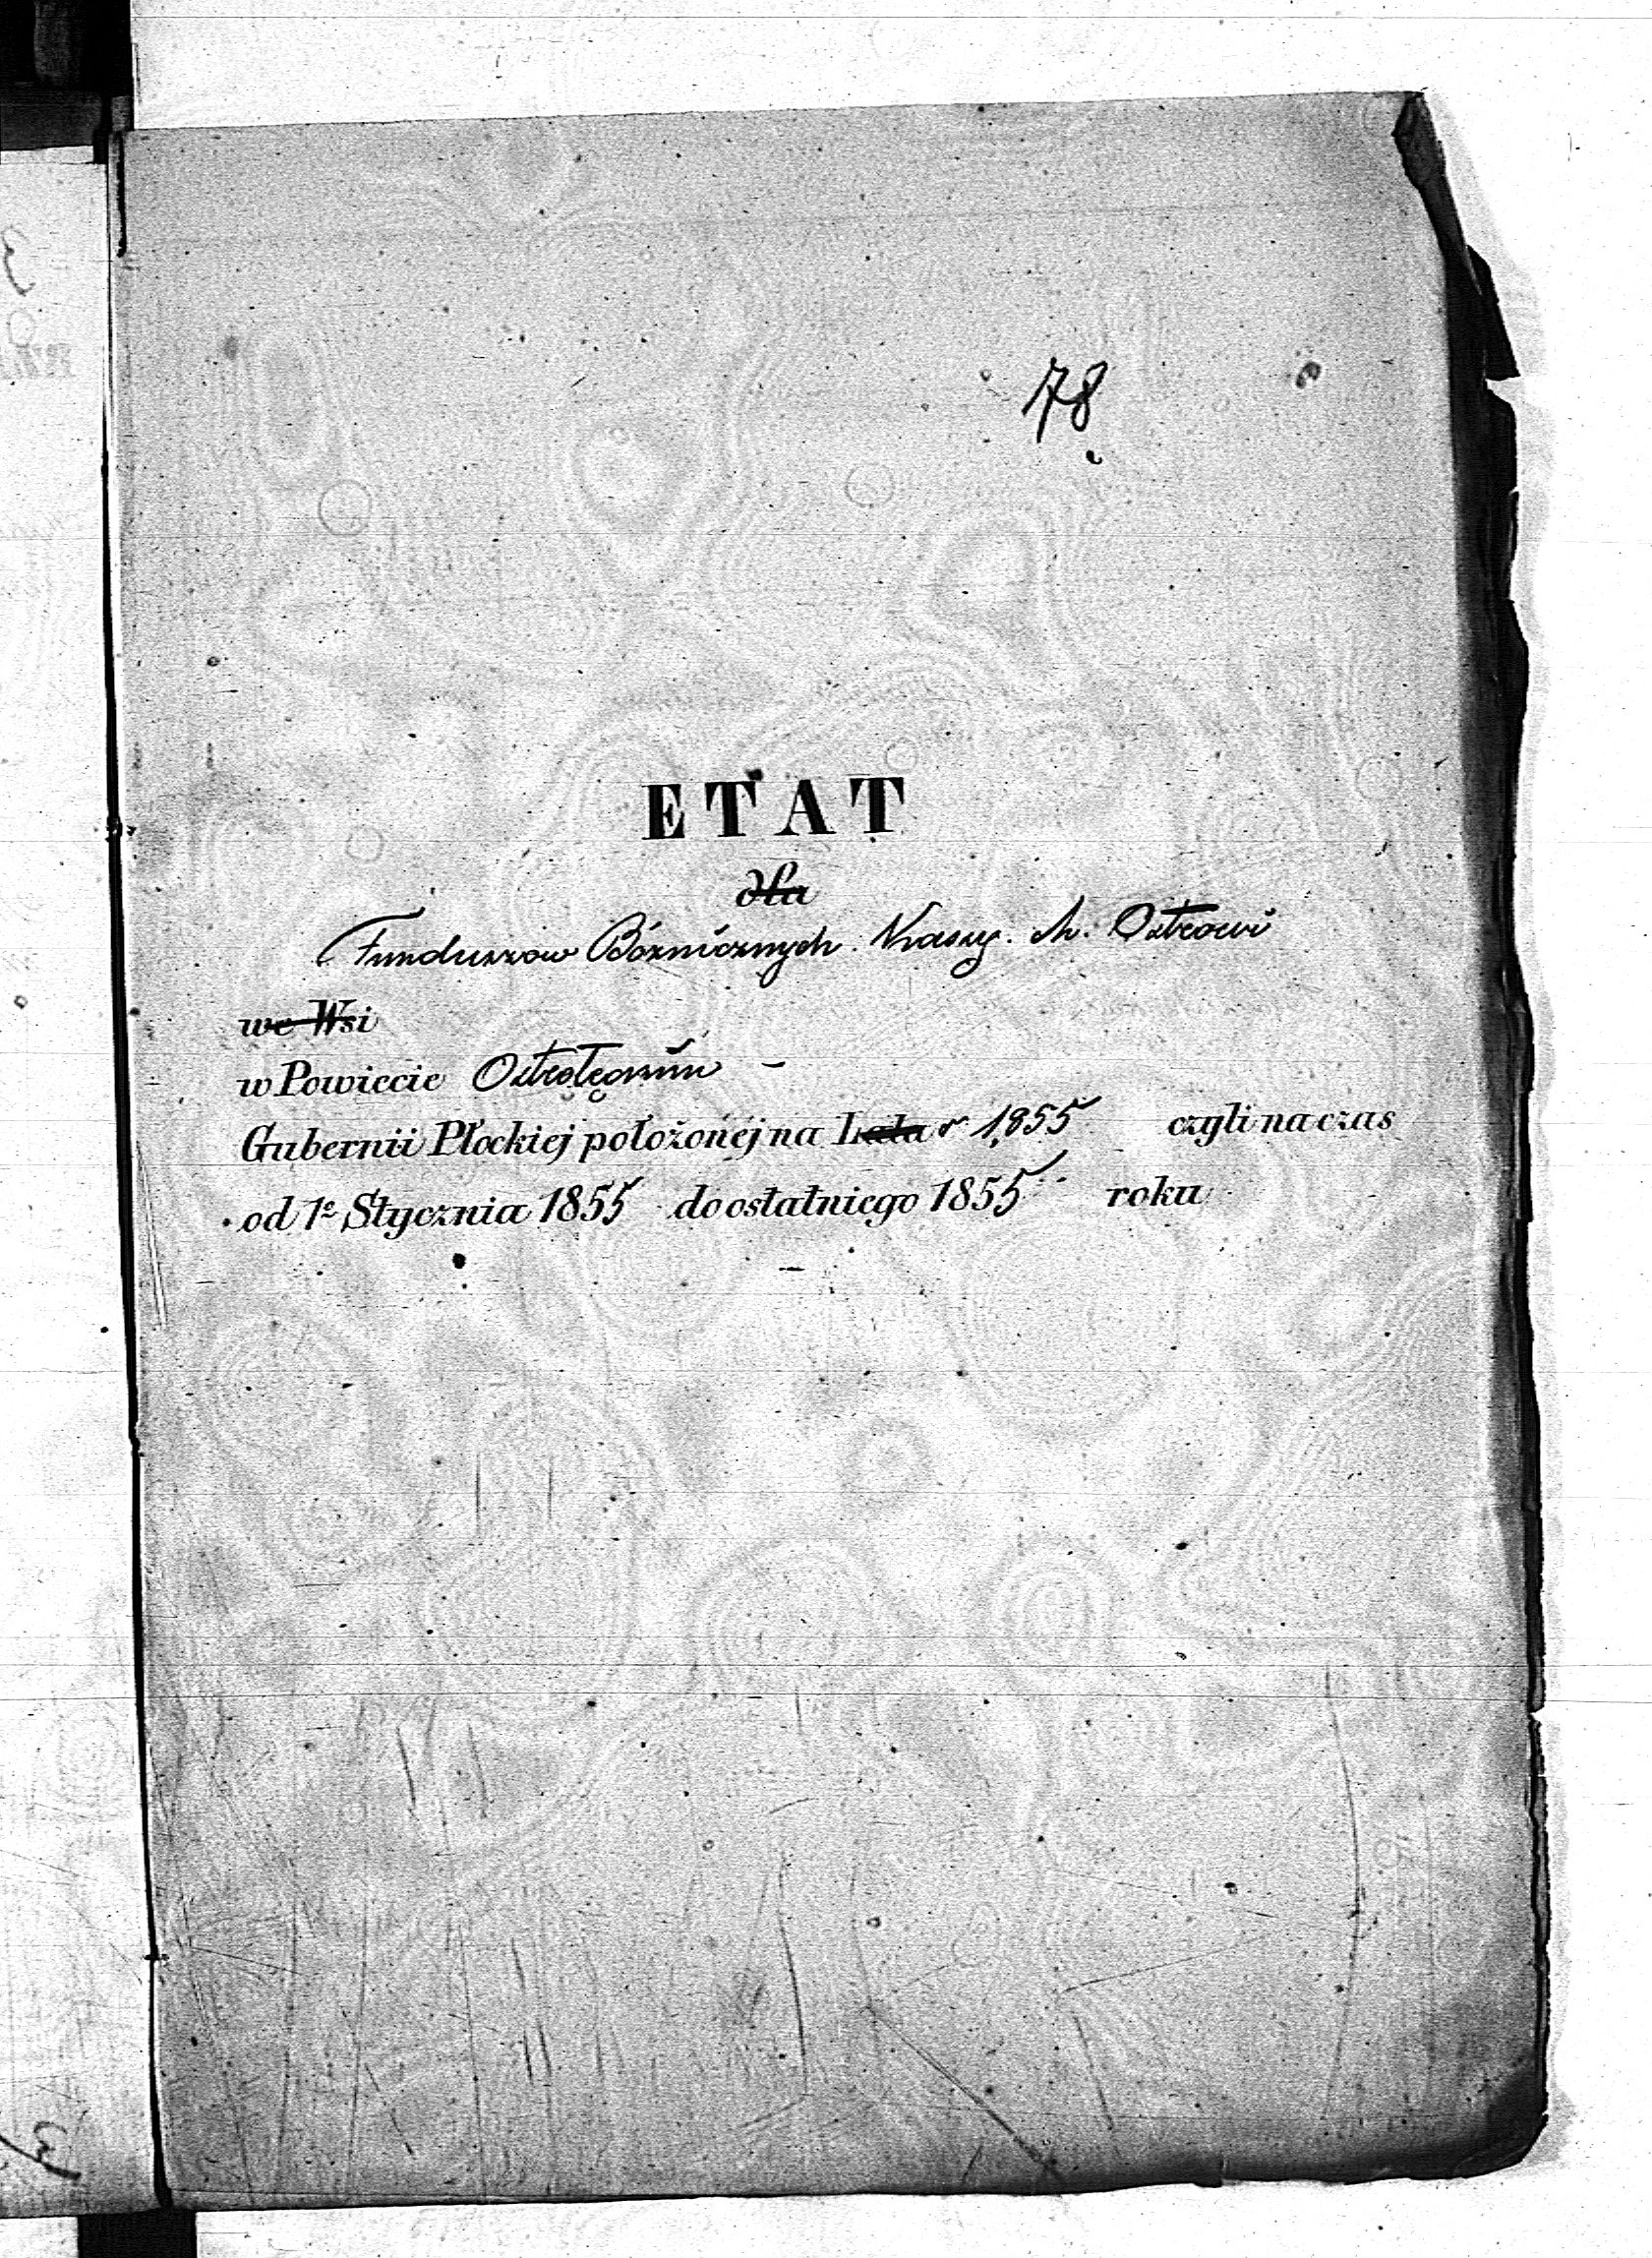 78
ETAT
dla
Funduszow Bóżnicznych Kassy M. Ostrowi
we Wsi
w Powiecie Ostrołęckim –
Gubernii Płockiej położonej na Lata r 1855 czyli na czas
od 1º Stycznia 1855 do ostatniego 1855 roku